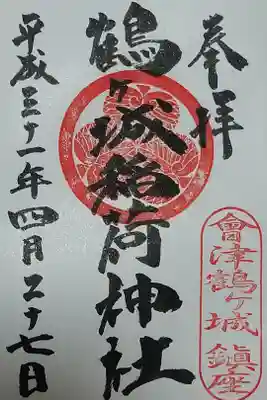 奉拝
鶴ヶ城稲荷神社
平成三十一年四月二十七日
會津鶴ヶ城 鎮座